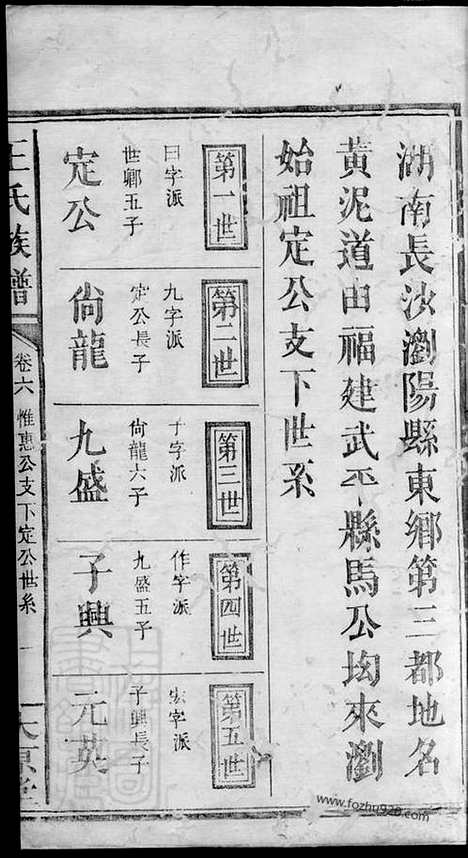 湖南長沙瀏陽縣東鄉第三都地名
黃泥道由福建武平縣馬公坳來瀏
始祖定公支下世系
第一世
曰字派
世卿五子
定公
第二世
九字派
定公長子
尙龍
第三世
子字派
尙龍六子
九盛
第四世
作字派
九盛五子
子興
第五世
字派
子興長子
元英
王氏族譜
卷六 惟惠公支下定公世系
一
太原堂
www.fozhu920.com